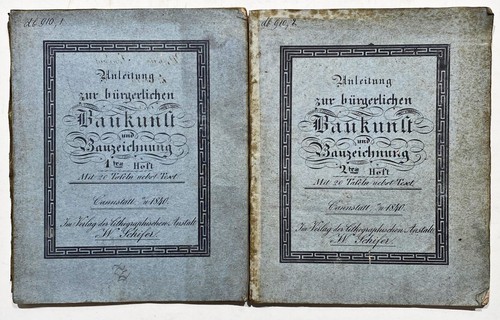 db 910, 1.
Anleitung
zur bürgerlichen
Baukunst
und
Bauzeichnung
1tes Heft
Mit 20 Tafeln nebst Text
Cannstatt 1840.
Im Verlag der lithographischen Anstalt
W. Schifer.
db 910, 2.
Anleitung
zur bürgerlichen
Baukunst
und
Bauzeichnung
2tes Heft
Mit 20 Tafeln nebst Text.
Cannstatt 1840.
Im Verlag der lithographischen Anstalt
W. Schifer.